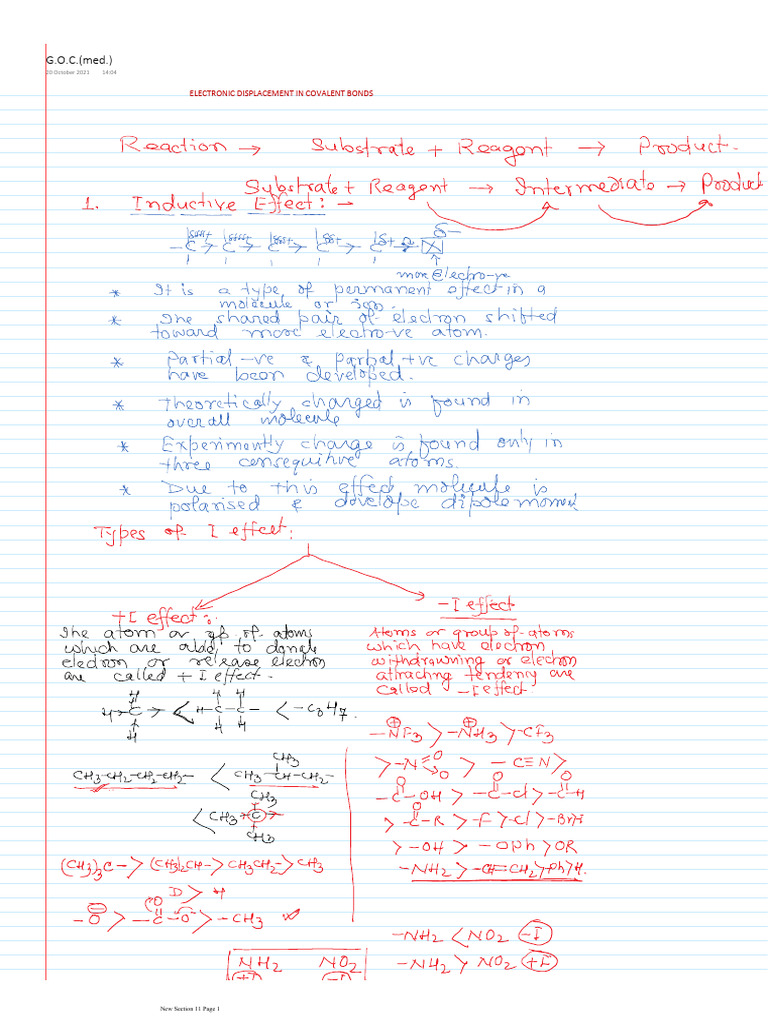 G.O.C.(med.)
20 October 2021 14:04
ELECTRONIC DISPLACEMENT IN COVALENT BONDS
Reaction → Substrate + Reagent → Product.
Substrate + Reagent → Intermediate → Product
1. Inductive Effect: →
-C δδδδ+ → C δδδ+ → C δδ+ → C δ+ → X δ-
more electro-ve
* It is a type of permanent effect in a
molecule or ion.
* The shared pair of electron shifted
toward more electro-ve atom.
* Partial -ve & Partial +ve charges
have been developed.
* Theoretically charged is found in
overall molecule
* Experimently charge is found only in
three consequitive atoms.
* Due to this effect molecule is
polarised & develope dipole moment
Types of I effect:
+I effect:
The atom or gp of atoms
which are able to donate
electron or release electron
are called + I effect.
H→C→ < H-C-C- < -C3H7.
CH3-CH2-CH2-CH2- < CH3-CH-CH2-
CH3
< CH3→C→
CH3
CH3
(CH3)3C- > (CH3)2CH- > CH3CH2- > CH3
D > H
-O⊖ > -C-O⊖ > -CH3
NH2 NO2
-I effect
Atoms or group of atoms
which have electron
withdrawning or electron
attracting tendency are
called -I effect.
-NF3 > -NH3 > -CF3
> -N=O→O > -C≡N >
-C-OH > -C-Cl > -C-H
> -C-R > -F > -Cl > -Br >I
> -OH > -OPh > OR
-NH2 > -CH=CH2 > Ph > H.
-NH2 < NO2 -I
-NH2 > NO2
New Section 11 Page 1